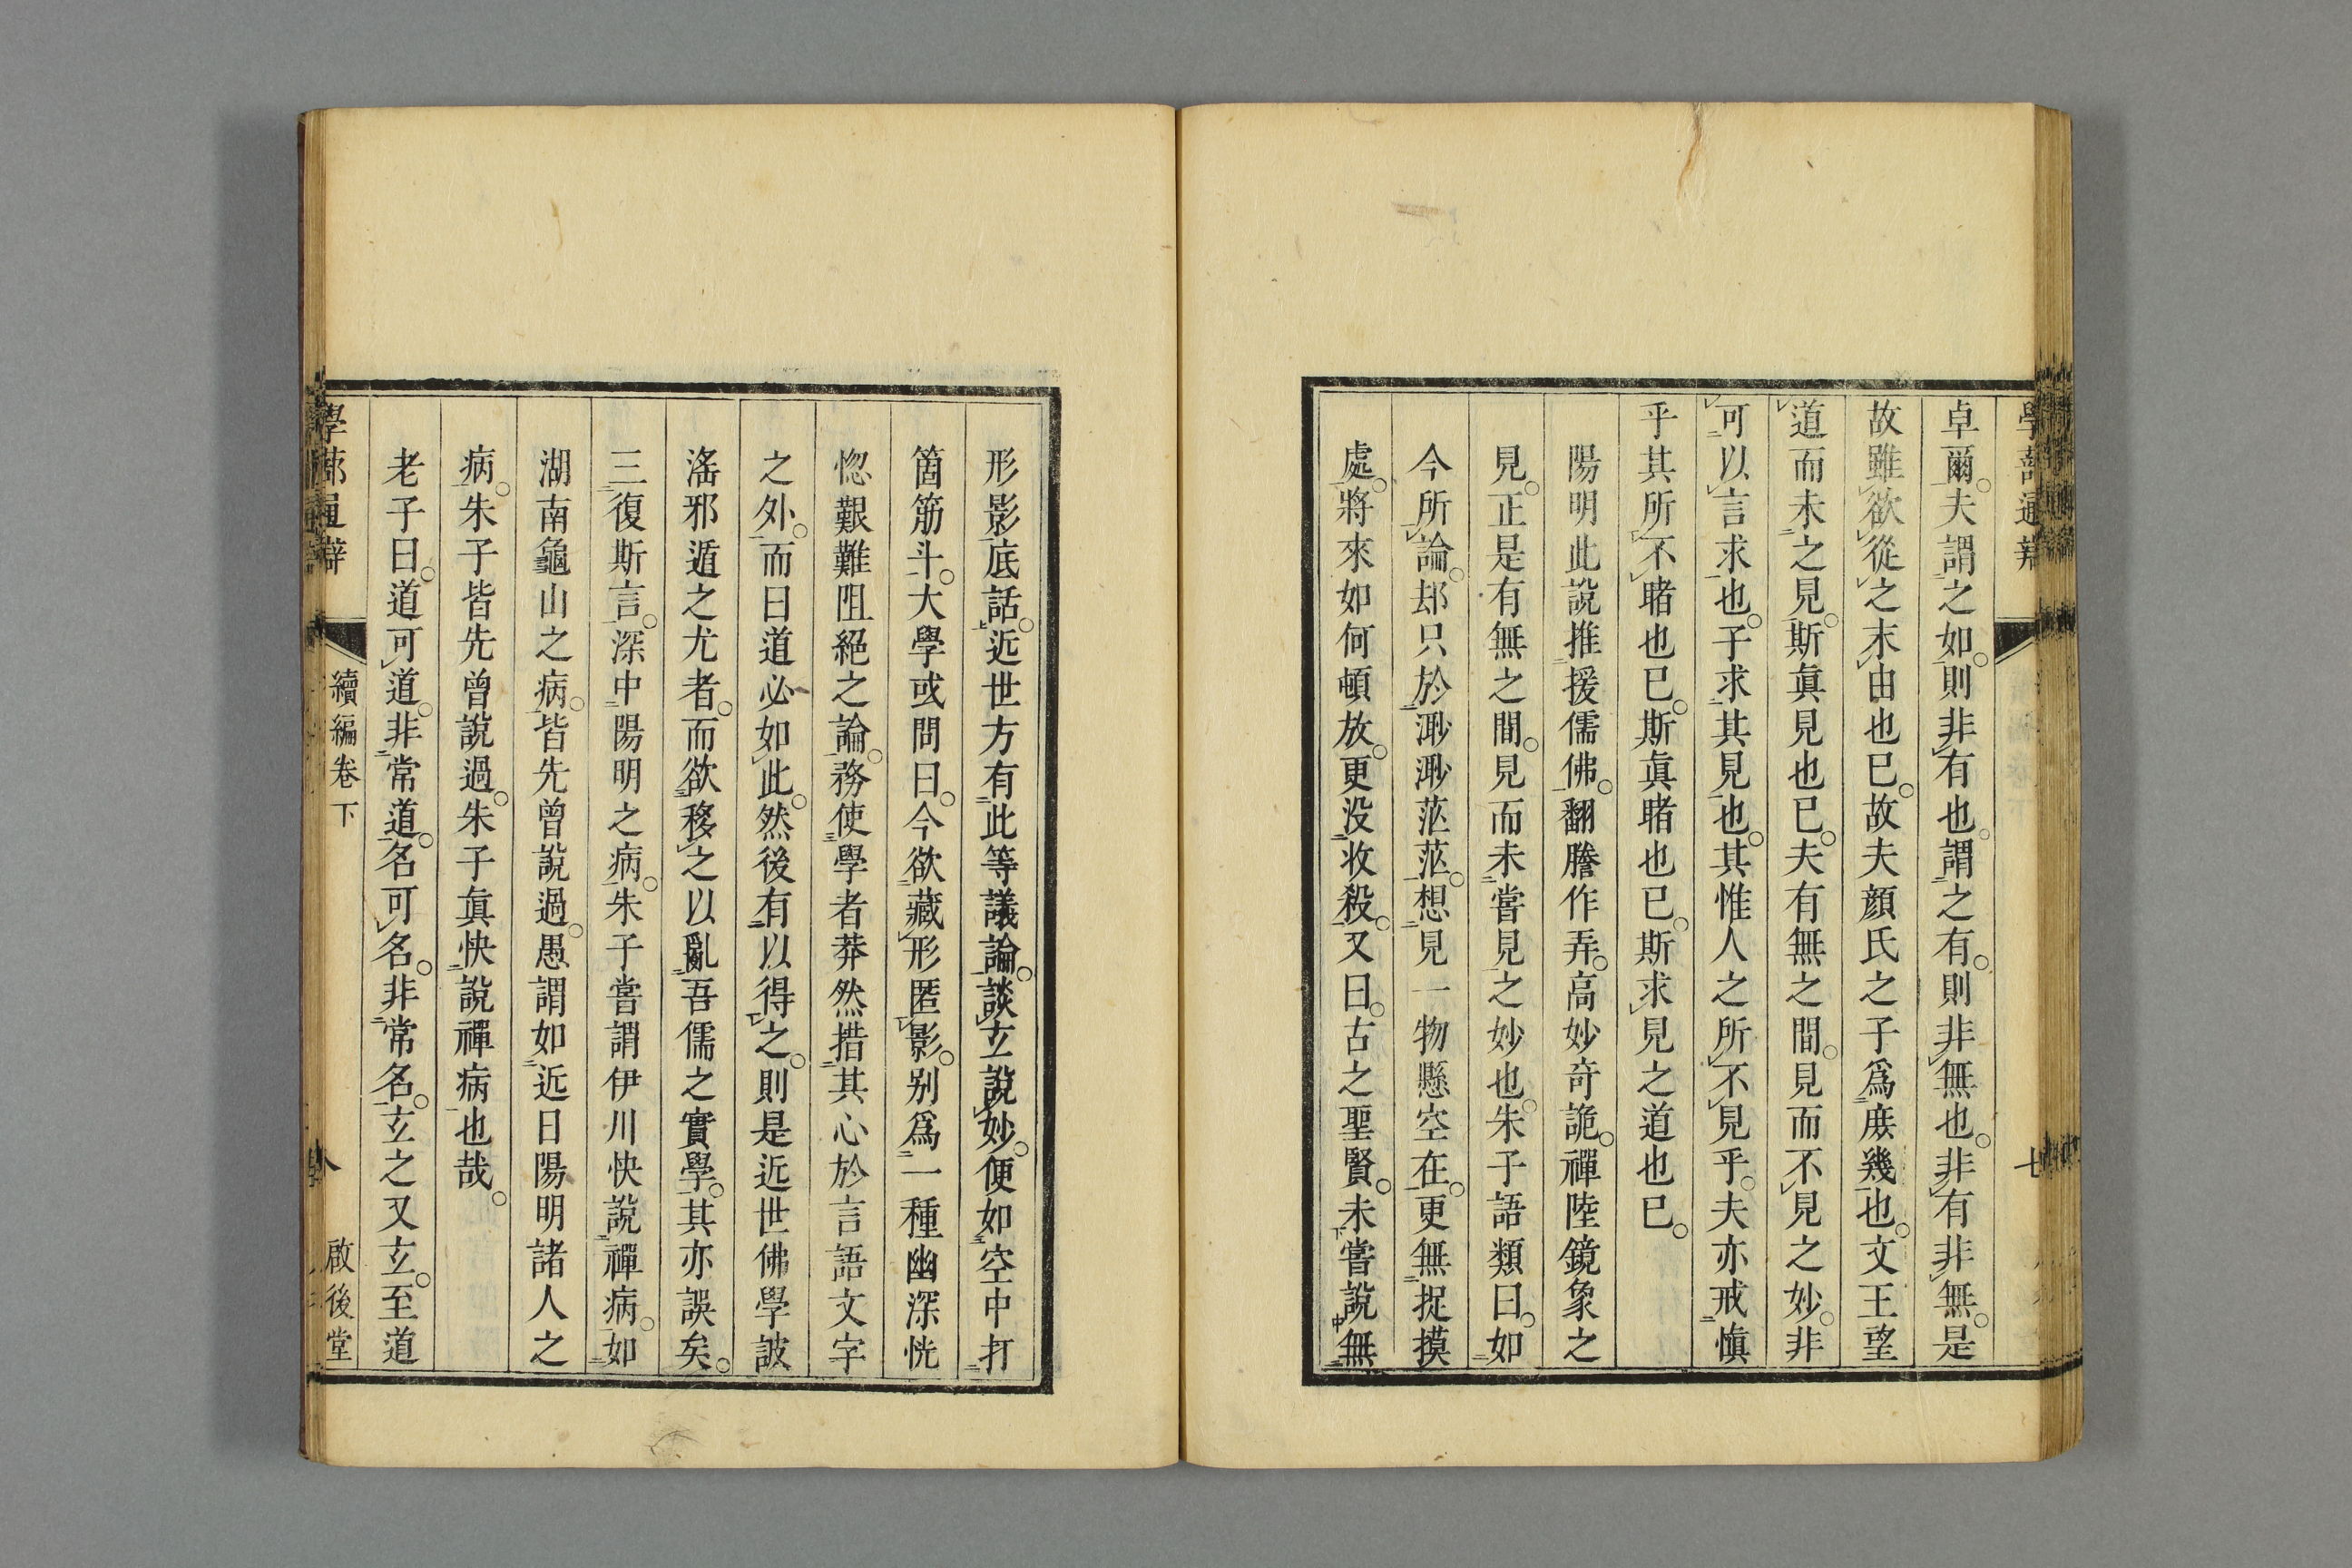 學蔀通辨
七
卓爾。夫謂之如。則非有也。謂之有。則非無也。非有非無。是
故雖欲從之末由也已。故夫顏氏之子爲庶幾也。文王望
道而未之見。斯眞見也已。夫有無之間。見而不見之妙。非
可以言求也。子求其見也。其惟人之所不見乎。夫亦戒愼
乎其所不睹也已。斯眞睹也已。斯求見之道也已。
陽明此說推援儒佛。翻謄作弄。高妙奇詭。禪陸鏡象之
見。正是有無之間。見而未嘗見之妙也。朱子語類曰。如
今所論。却只於渺渺茫茫。想見一物懸空在。更無捉摸
處。將來如何頓放。更没收殺。又曰。古之聖賢。未嘗說無
形影底話。近世方有此等議論。談玄說妙。便如空中打
箇筋斗。大學或問曰。今欲藏形匿影。别爲一種幽深恍
惚艱難阻絕之論。務使學者莽然措其心於言語文字
之外。而曰道必如此。然後有以得之。則是近世佛學詖
淫邪遁之尤者。而欲移之以亂吾儒之實學。其亦誤矣。
三復斯言。深中陽明之病。朱子嘗謂伊川快說禪病。如
湖南龜山之病。皆先曾說過。愚謂如近日陽明諸人之
病。朱子皆先曾說過。朱子眞快說禪病也哉。
老子曰。道可道。非常道。名可名。非常名。玄之又玄。至道
學蔀通辯
續編卷下
八
啟後堂